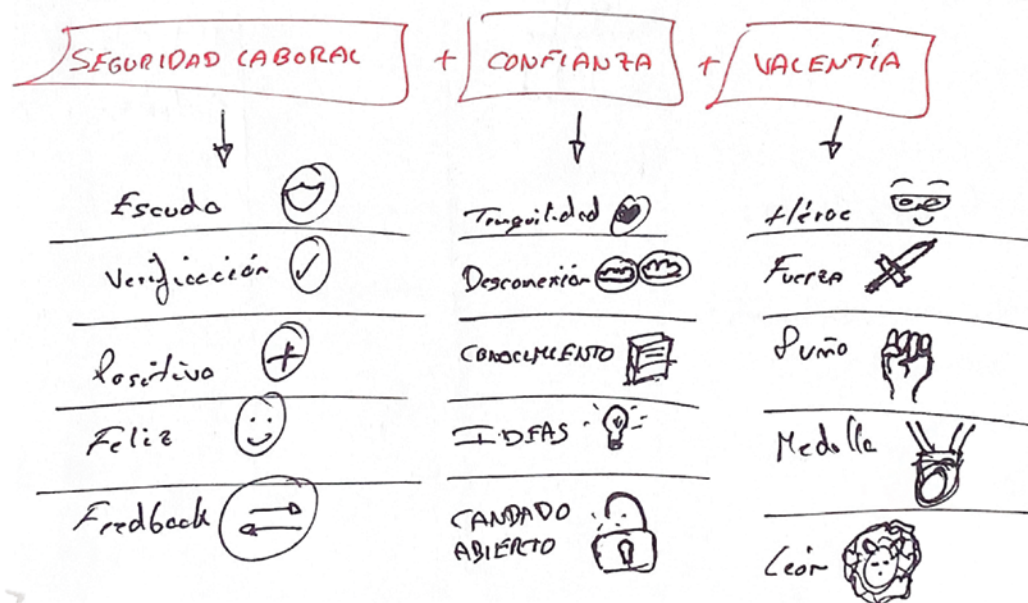 SEGURIDAD LABORAL + CONFIANZA + VALENTÍA
Escudo
Verificación
Positivo
Feliz
Feedback
Tranquilidad
Desconexión
CONOCIMIENTO
IDEAS
CANDADO
ABIERTO
Héroe
Fuerza
Puño
Medalla
León